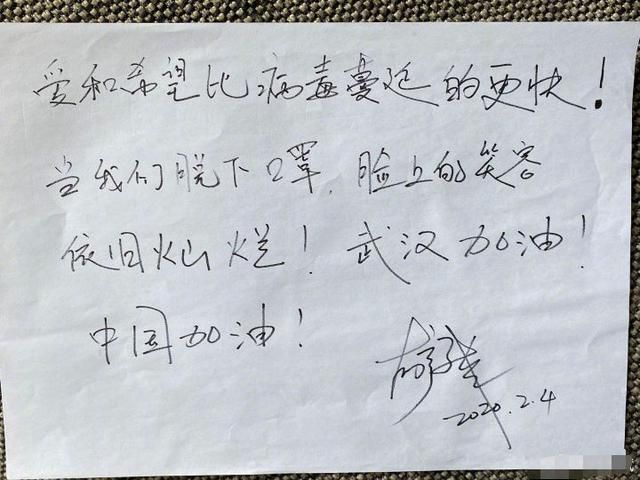 爱和希望比病毒蔓延的更快！
当我们脱下口罩，脸上的笑容
依旧灿烂！武汉加油！
中国加油！
2020.2.4